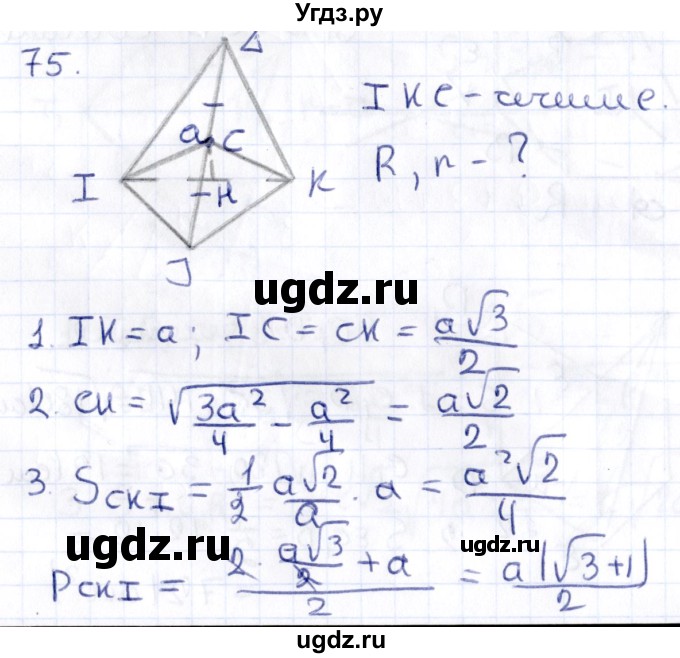 Угдз.ру
75.
Δ
a C
I
H
K
J
IKC - сечение.
R, r - ?
ugdz.ru
1. IK = a; IC = CK = a√3/2
2. CH = √(3a²/4 - a²/4) = a√2/2
3. S CKI = 1/2 a√2/a · a = a²√2/4
ugdz.ru
ugdz.ru
P CKI = (2 · a√3/2 + a)/2 = a(√3+1)/2
ugdz.ru